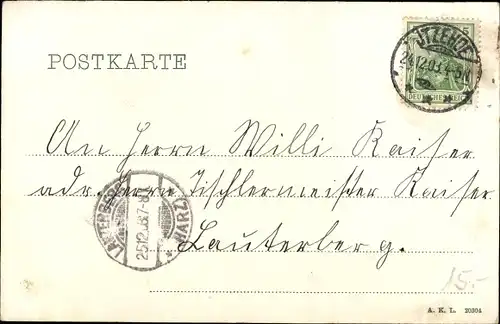 ITZEHOE
24.12.03. 4-5N
DEUTSCHES REICH
POSTKARTE
An Herrn Willi Kaiser
adr. Herrn Tischlermeister Kaiser
Lauterberg.
LAUTERBERG (HARZ)
25.12.03. 7-8
15.-
A. K. L. 20304